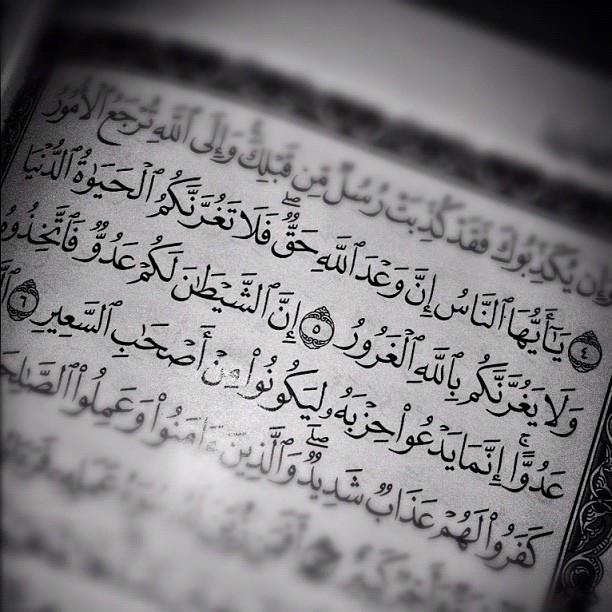 وَإِن يُكَذِّبُوكَ فَقَدْ كُذِّبَتْ رُسُلٌ مِّن قَبْلِكَ ۚ وَإِلَى ٱللَّهِ تُرْجَعُ ٱلْأُمُورُ
٤ يَٰٓأَيُّهَا ٱلنَّاسُ إِنَّ وَعْدَ ٱللَّهِ حَقٌّ ۖ فَلَا تَغُرَّنَّكُمُ ٱلْحَيَوٰةُ ٱلدُّنْيَا
وَلَا يَغُرَّنَّكُم بِٱللَّهِ ٱلْغَرُورُ ٥ إِنَّ ٱلشَّيْطَٰنَ لَكُمْ عَدُوٌّ فَٱتَّخِذُوهُ
عَدُوًّا ۚ إِنَّمَا يَدْعُوا۟ حِزْبَهُۥ لِيَكُونُوا۟ مِنْ أَصْحَٰبِ ٱلسَّعِيرِ ٦
كَفَرُوا۟ لَهُمْ عَذَابٌ شَدِيدٌ ۖ وَٱلَّذِينَ ءَامَنُوا۟ وَعَمِلُوا۟ ٱلصَّٰلِحَ